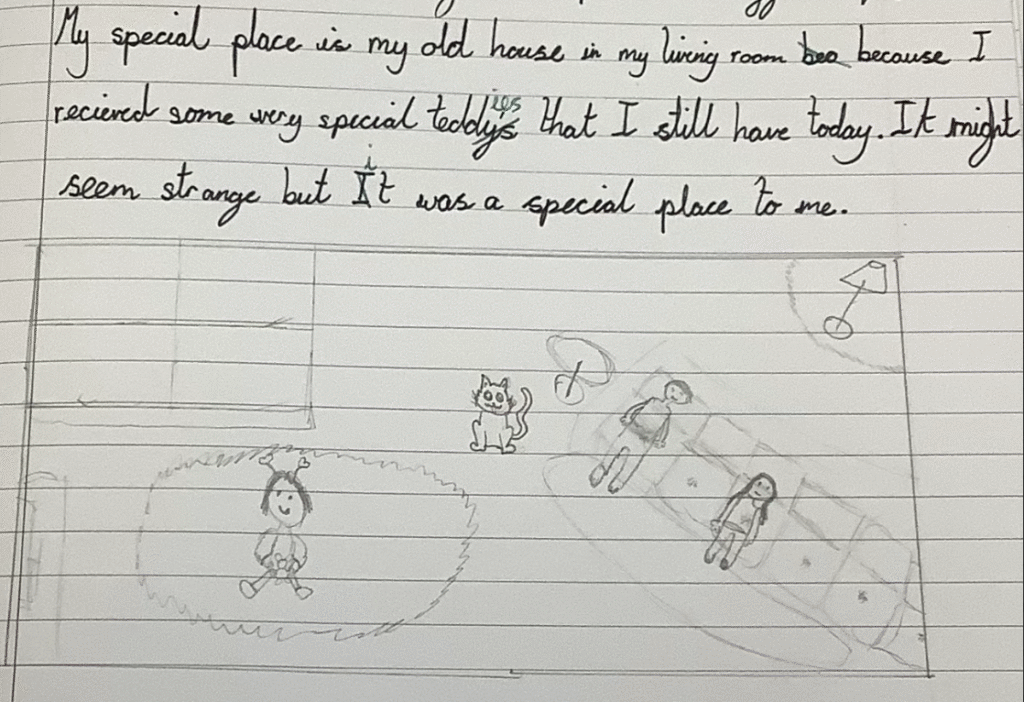 My special place is my old house in my living room because I
recieved some very special teddies that I still have today. It might
seem strange but it was a special place to me.